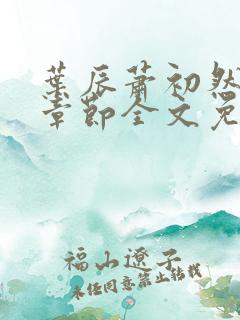 葉辰蕭初然
章節全文免
福山遼子
未经同意禁止转载